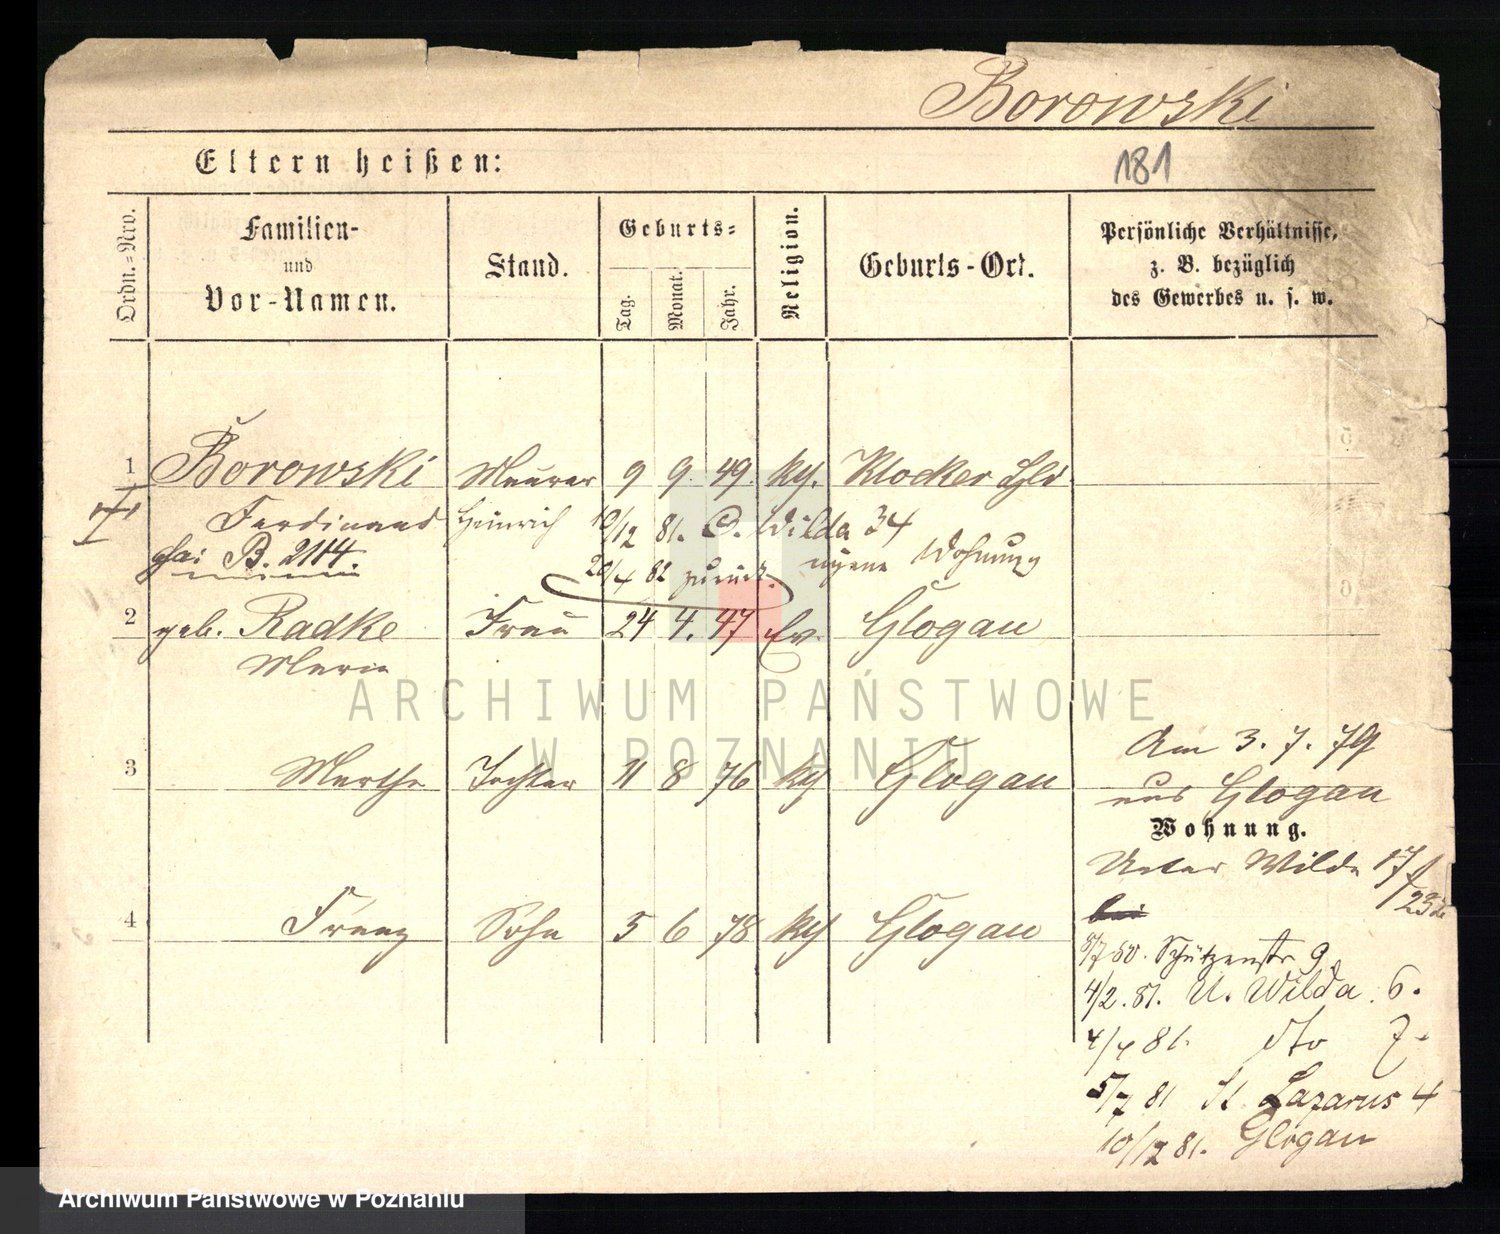 Borowski
Eltern heißen:
181
Ordn.-Nro.
Familien-
und
Vor-Namen.
Stand.
Geburts-
Tag.
Monat.
Jahr.
Religion.
Geburts-Ort.
Persönliche Verhältnisse,
z. B. bezüglich
des Gewerbes u. s. w.
1 Borowski Maurer 9 9. 49. kth. Klocker Gld
Ferdinand Heinrich 10/12 81. O. Wilda 34
B. 2114. eigene Wohnung
20/4 82 zurück.
2 geb. Radke Frau 24 4. 47 Ev. Glogau
Maria
3 Marthe Tochter 11 8 76 kth Glogau
4 Franz Sohn 5 6 78 kth Glogau
Am 3. 7. 79
aus Glogau
Wohnung.
Unter Wilda 17
bei
5/7 80. Schützenstr 9.
4/2. 81. U. Wilda 6.
4/4 81. dto 7.
5/7 81 St. Lazarus 4
10/12 81. Glogau
ARCHIWUM PAŃSTWOWE
W POZNANIU
Archiwum Państwowe w Poznaniu